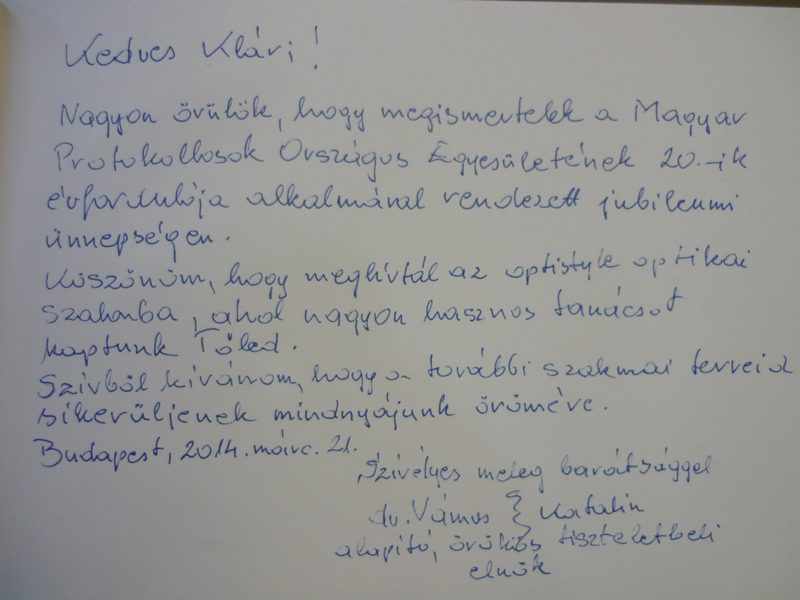 Kedves Klári!
Nagyon örülök, hogy megismertelek a Magyar
Protokollosok Országos Egyesületének 20.-ik
évfordulója alkalmával rendezett jubileumi
ünnepségen.
Köszönöm, hogy meghívtál az optistyle optikai
szalonba, ahol nagyon hasznos tanácsot
kaptunk Tőled.
Szívből kívánom, hogy a további szakmai terveid
sikerüljenek mindnyájunk örömére.
Budapest, 2014. márc. 21.
Szívélyes meleg barátsággal
dr. Vámos Katalin
alapító, örökös tiszteletbeli
elnök